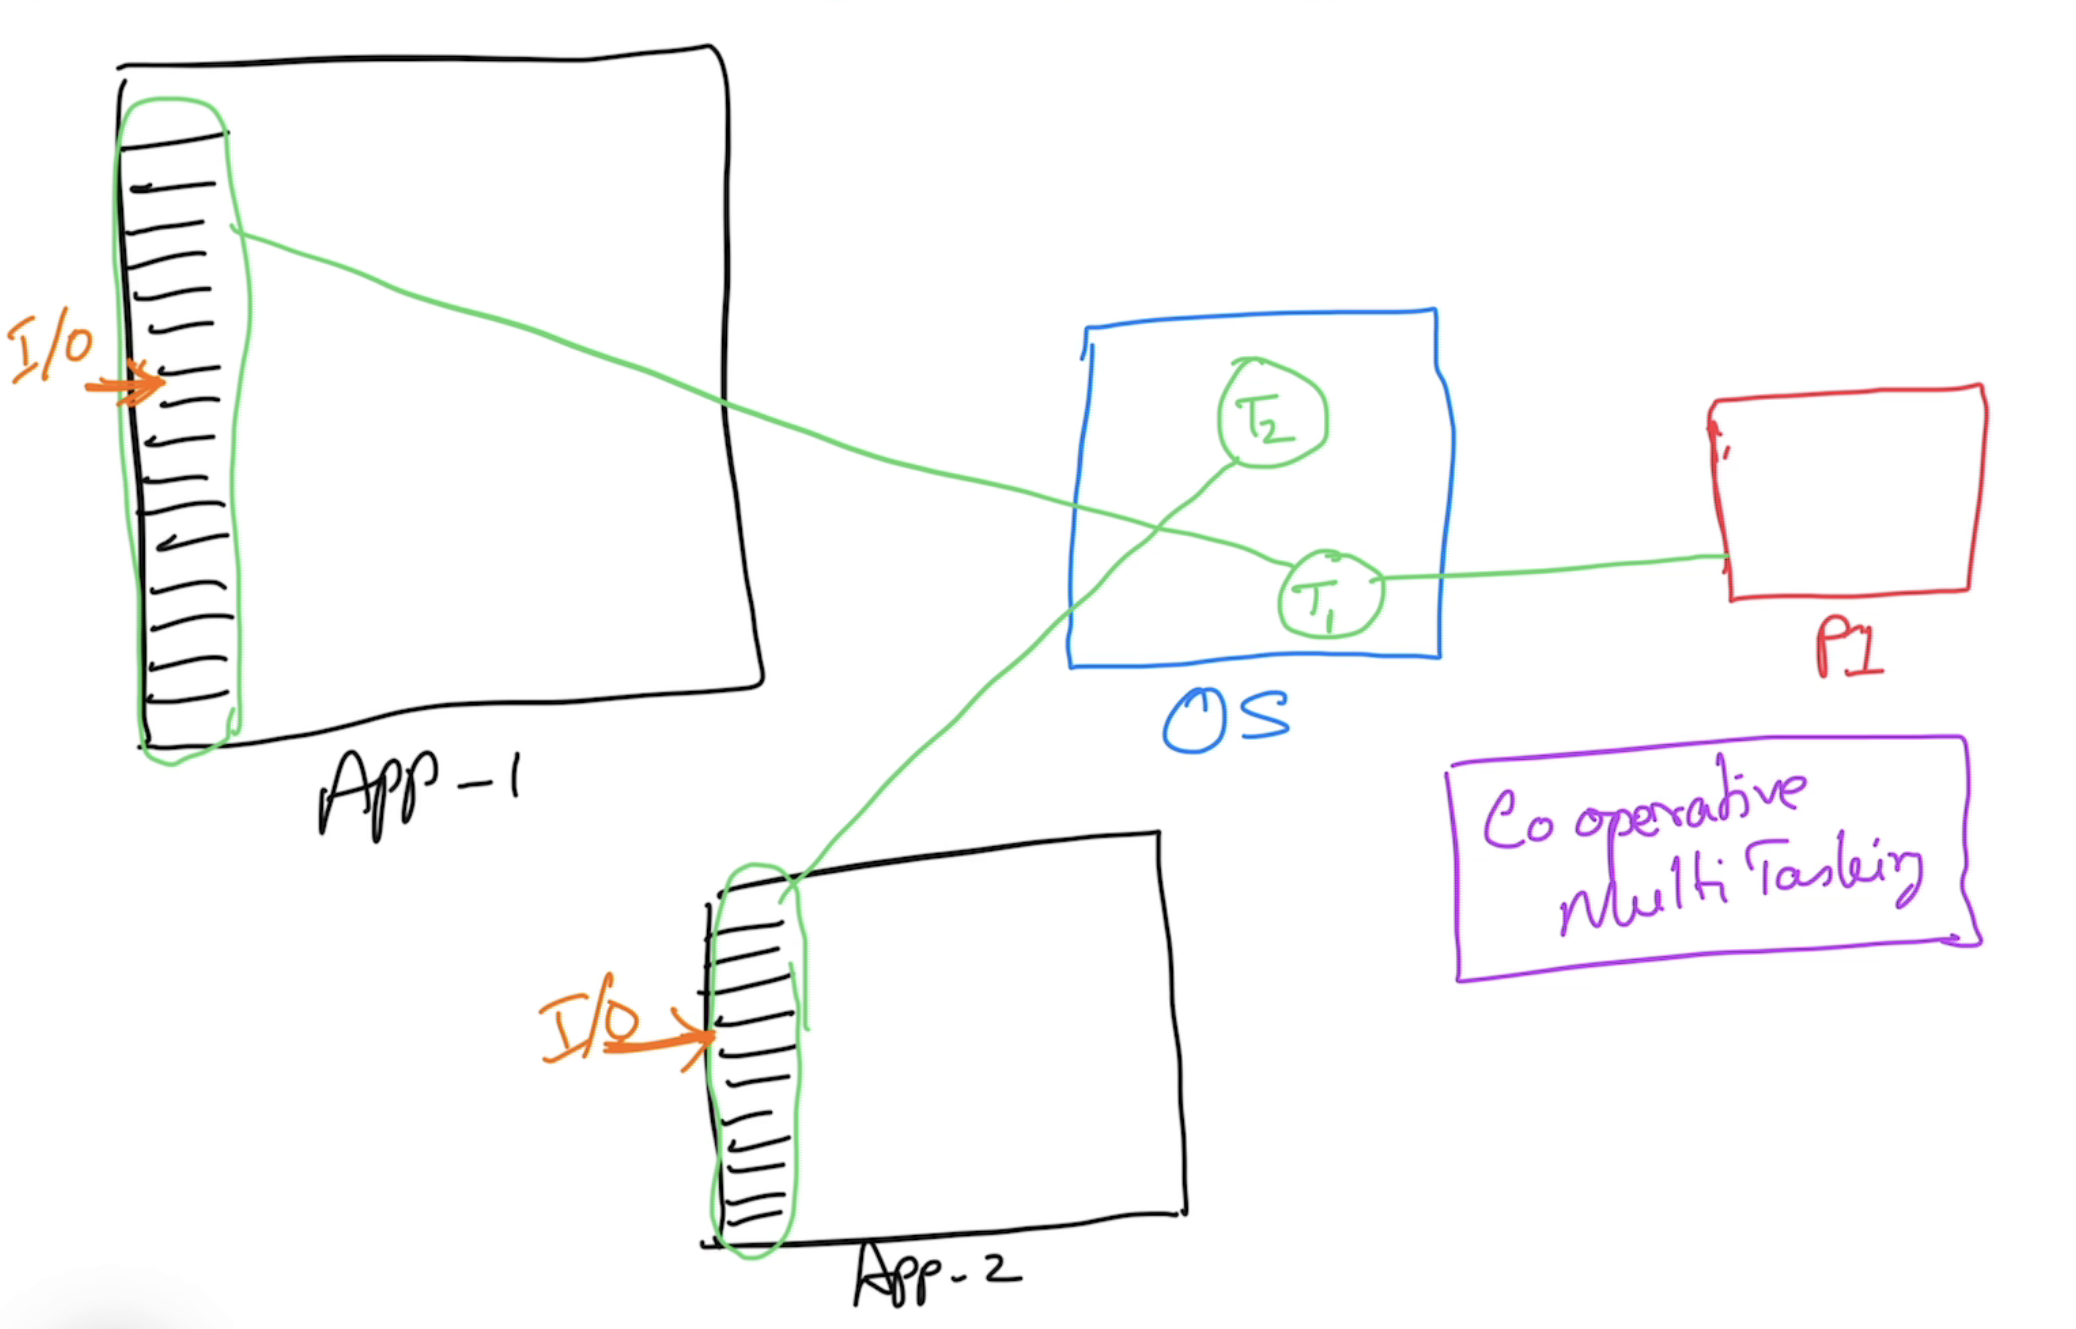 I/O
App-1
T2
T1
OS
P1
Co operative
Multi Tasking
I/O
App-2